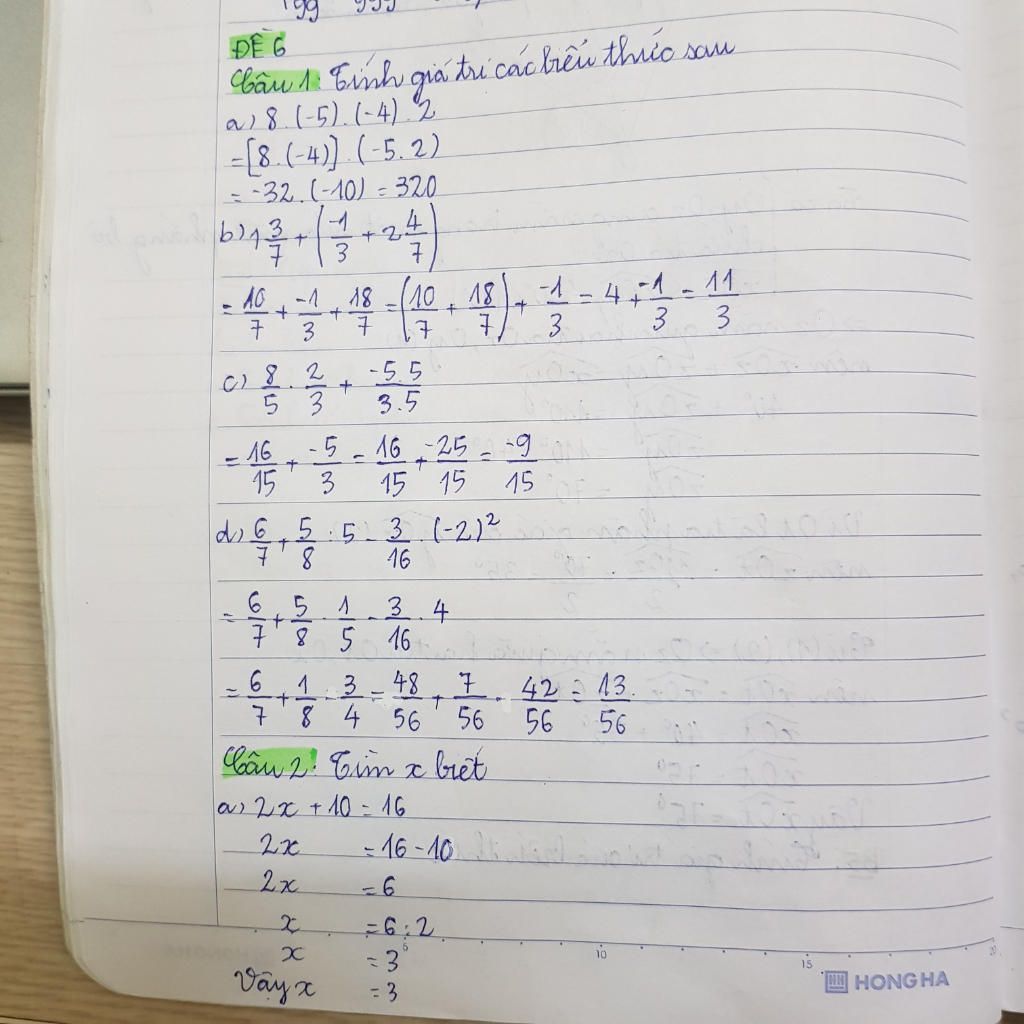 ĐỀ 6
Câu 1: Tính giá trị các biểu thức sau
a) 8.(-5).(-4).2
= [8.(-4)].(-5.2)
= -32.(-10) = 320
b) 1 3/7 + (-1/3 + 2 4/7)
= 10/7 + -1/3 + 18/7 = (10/7 + 18/7) + -1/3 = 4 + -1/3 = 11/3
c) 8/5 . 2/3 + -5.5/3.5
= 16/15 + -5/3 = 16/15 + -25/15 = -9/15
d) 6/7 + 5/8 : 5 - 3/16 . (-2)²
= 6/7 + 5/8 . 1/5 - 3/16 . 4
= 6/7 + 1/8 - 3/4 = 48/56 + 7/56 - 42/56 = 13/56
Câu 2: Tìm x biết
a) 2x + 10 = 16
2x = 16 - 10
2x = 6
x = 6 : 2
x = 3
Vậy x = 3
10 15
HONG HA